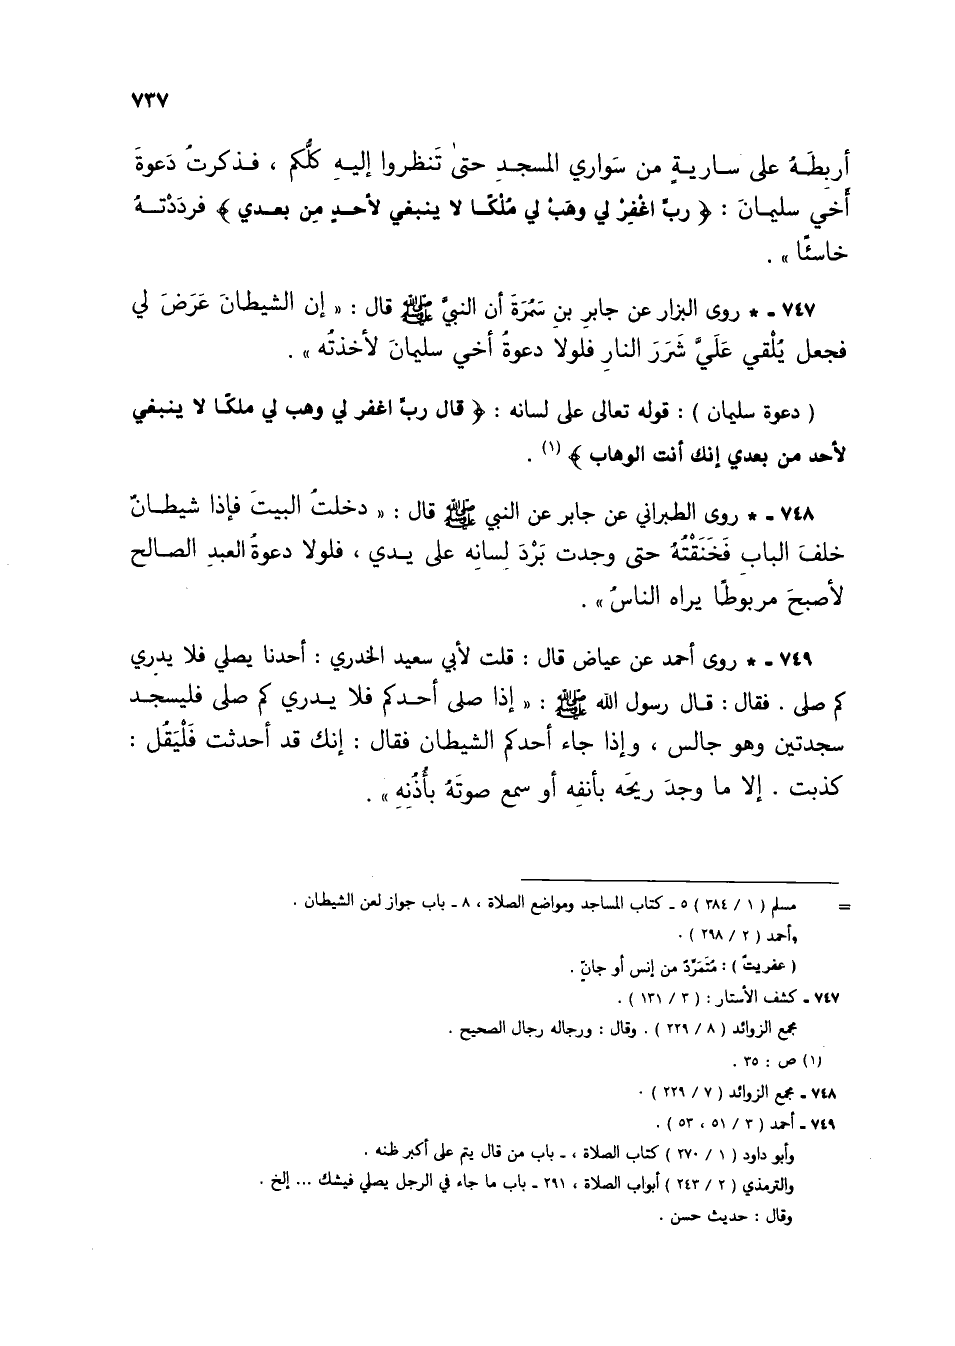 ٧٣٧
أربطَهُ على ساريةٍ من سَواري المسجدِ حتىٰ تَنظروا إليهِ كلُّكم ، فذكرتُ دَعوةَ
أخي سليمانَ : ﴿ ربِّ اغفِرْ لي وهَبْ لي مُلْكًا لا ينبغي لأحدٍ مِن بعدي ﴾ فردَدْتهُ
خاسئًا » .
٧٤٧ ـ * روى البزار عن جابرِ بنِ سَمُرَةَ أن النبيَّ ﷺ قال : « إن الشيطانَ عَرَضَ لي
فجعل يُلْقي عَلَيَّ شَرَرَ النارِ فلولا دعوةُ أخي سليمانَ لأخذتُه » .
( دعوة سليمان ) : قوله تعالى على لسانه : ﴿ قال ربِّ اغفر لي وهب لي ملكًا لا ينبغي
لأحد من بعدي إنك أنت الوهاب ﴾ (١) .
٧٤٨ ـ * روى الطبراني عن جابر عن النبي ﷺ قال : « دخلتُ البيتَ فإذا شيطانٌ
خلفَ البابِ فَخَنَقْتُهُ حتى وجدت بَرْدَ لِسانِه على يدي ، فلولا دعوةُ العبدِ الصالح
لأصبحَ مربوطًا يراه الناسُ » .
٧٤٩ ـ * روى أحمد عن عياض قال : قلت لأبي سعيد الخدري : أحدنا يصلي فلا يدري
كم صلى . فقال : قال رسول الله ﷺ : « إذا صلى أحدكم فلا يدري كم صلى فليسجد
سجدتين وهو جالس ، وإذا جاء أحدكم الشيطان فقال : إنك قد أحدثت فَلْيَقُل :
كذبت . إلا ما وجدَ ريحَه بأنفِه أو سمع صوتَهُ بأُذُنِهِ » .
= مسلم ( ١ / ٣٨٤ ) ٥ ـ كتاب المساجد ومواضع الصلاة ، ٨ ـ باب جواز لعن الشيطان .
وأحمد ( ٢ / ٢٩٨ ) .
( عفريت ) : مُتَمَرِّدٌ من إنس أو جانٍّ .
٧٤٧ ـ كشف الأستار : ( ٣ / ١٣١ ) .
مجمع الزوائد ( ٨ / ٢٢٩ ) . وقال : ورجاله رجال الصحيح .
(١) ص : ٣٥ .
٧٤٨ ـ مجمع الزوائد ( ٧ / ٢٢٩ ) .
٧٤٩ ـ أحمد ( ٣ / ٥١ ، ٥٣ ) .
وأبو داود ( ١ / ٢٧٠ ) كتاب الصلاة ، ـ باب من قال يتم على أكبر ظنه .
والترمذي ( ٢ / ٢٤٣ ) أبواب الصلاة ، ٢٩١ ـ باب ما جاء في الرجل يصلي فيشك ... إلخ .
وقال : حديث حسن .